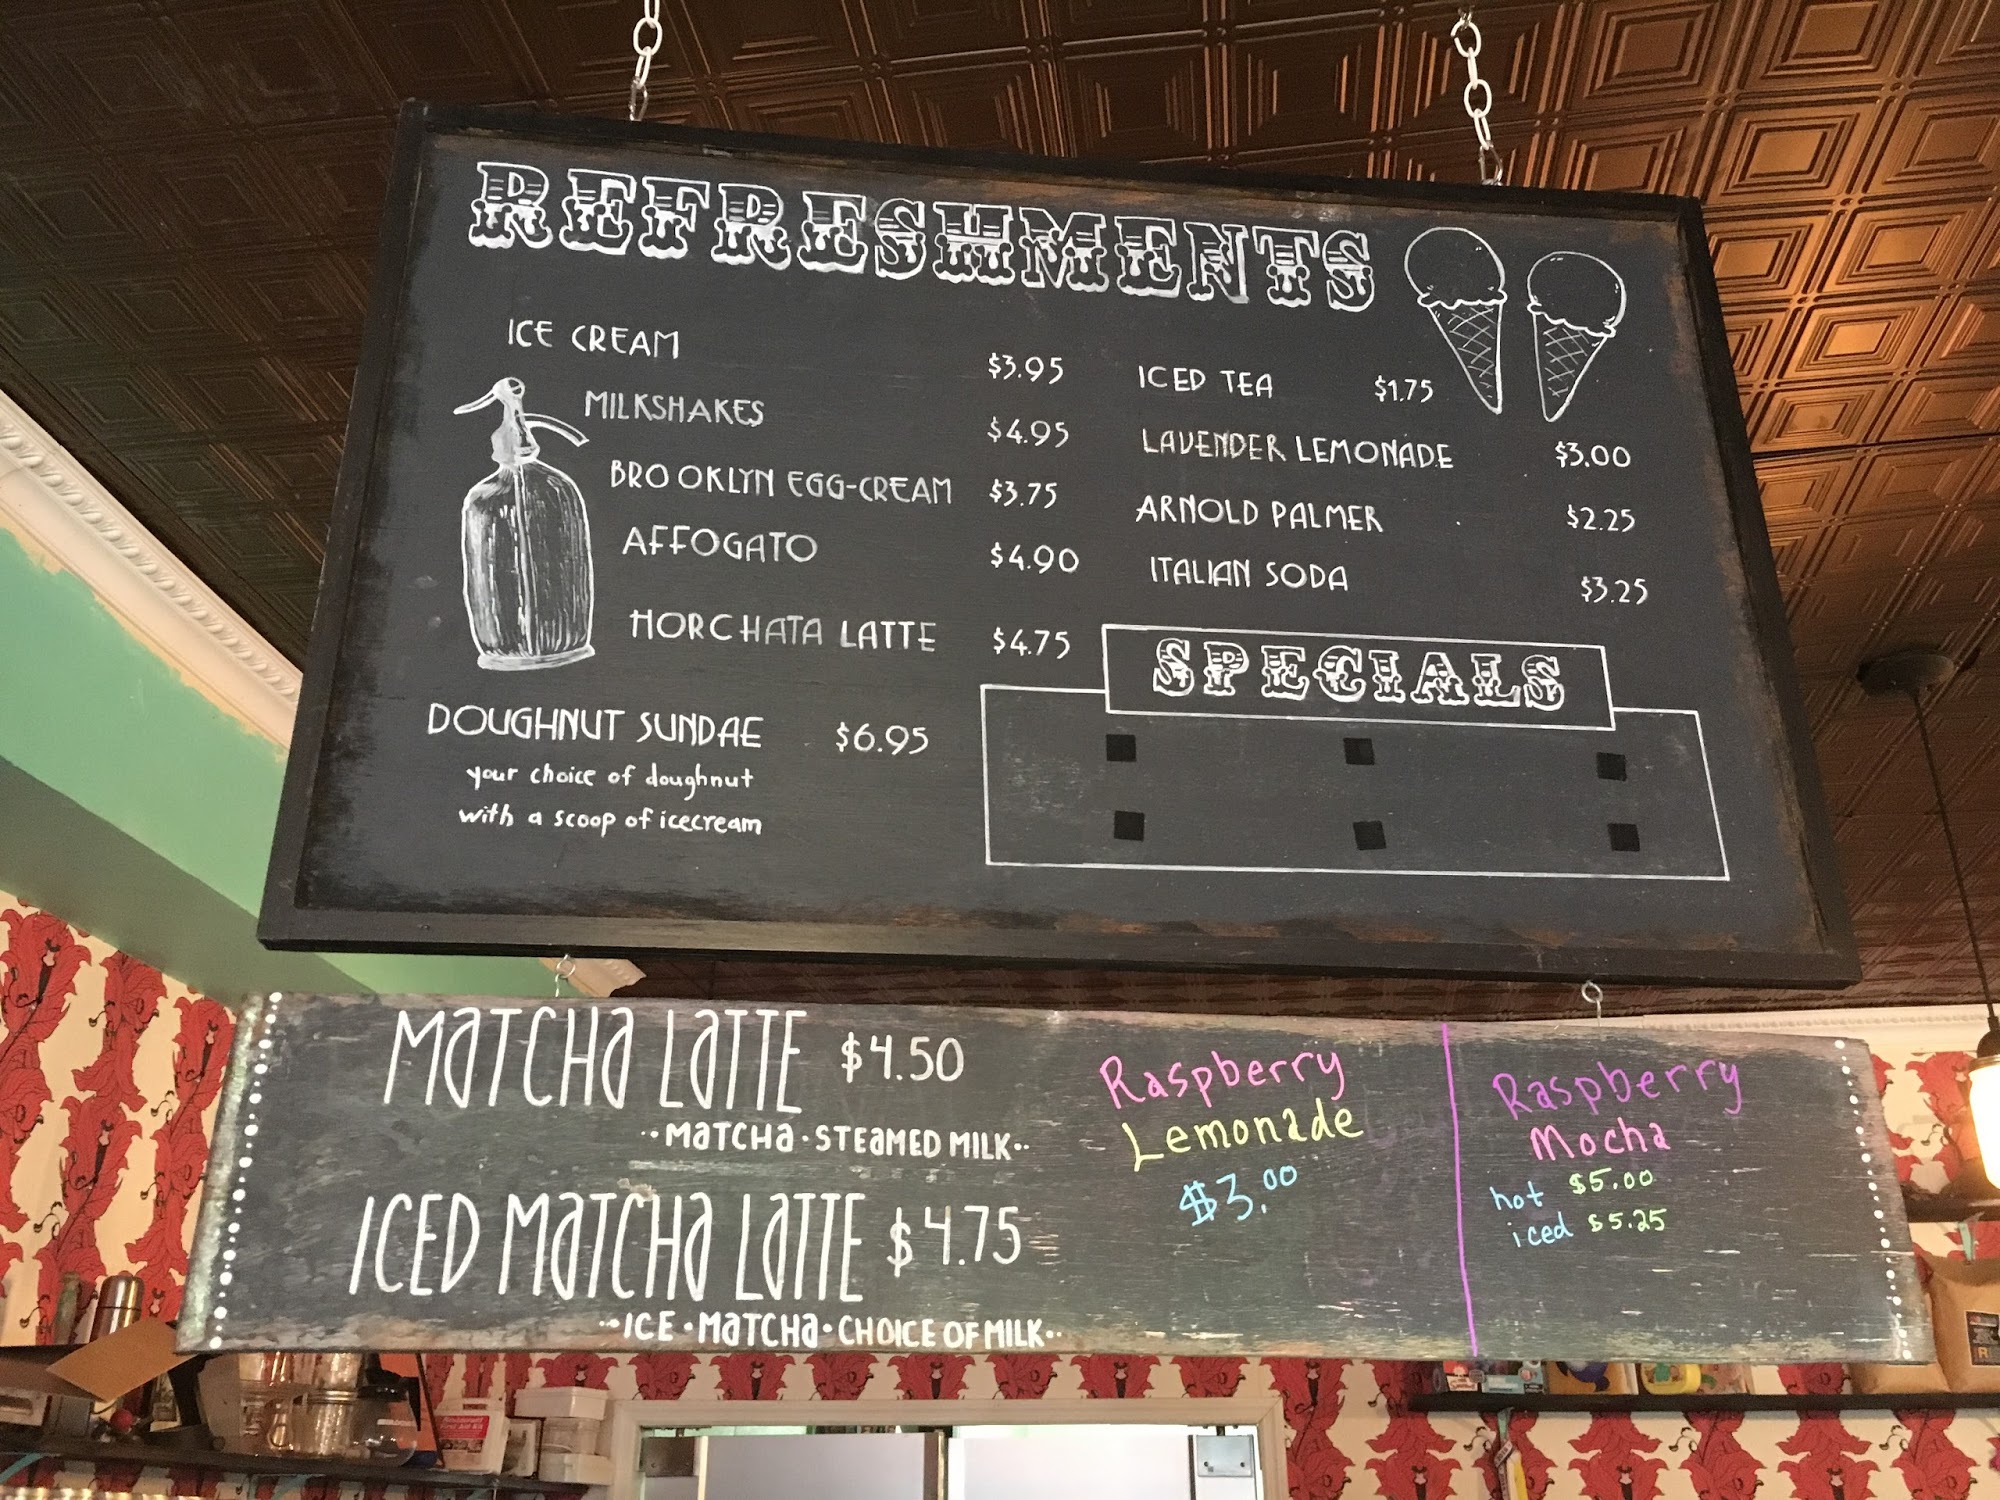 REFRESHMENTS
ICE CREAM $3.95
MILKSHAKES $4.95
BROOKLYN EGG-CREAM $3.75
AFFOGATO $4.90
HORCHATA LATTE $4.75
DOUGHNUT SUNDAE $6.95
your choice of doughnut
with a scoop of icecream
ICED TEA $1.75
LAVENDER LEMONADE $3.00
ARNOLD PALMER $2.25
ITALIAN SODA $3.25
SPECIALS
MATCHA LATTE $4.50
··MATCHA·STEAMED MILK··
ICED MATCHA LATTE $4.75
··ICE·MATCHA·CHOICE OF MILK··
Raspberry
Lemonade
$3.00
Raspberry
Mocha
hot $5.00
iced $5.25